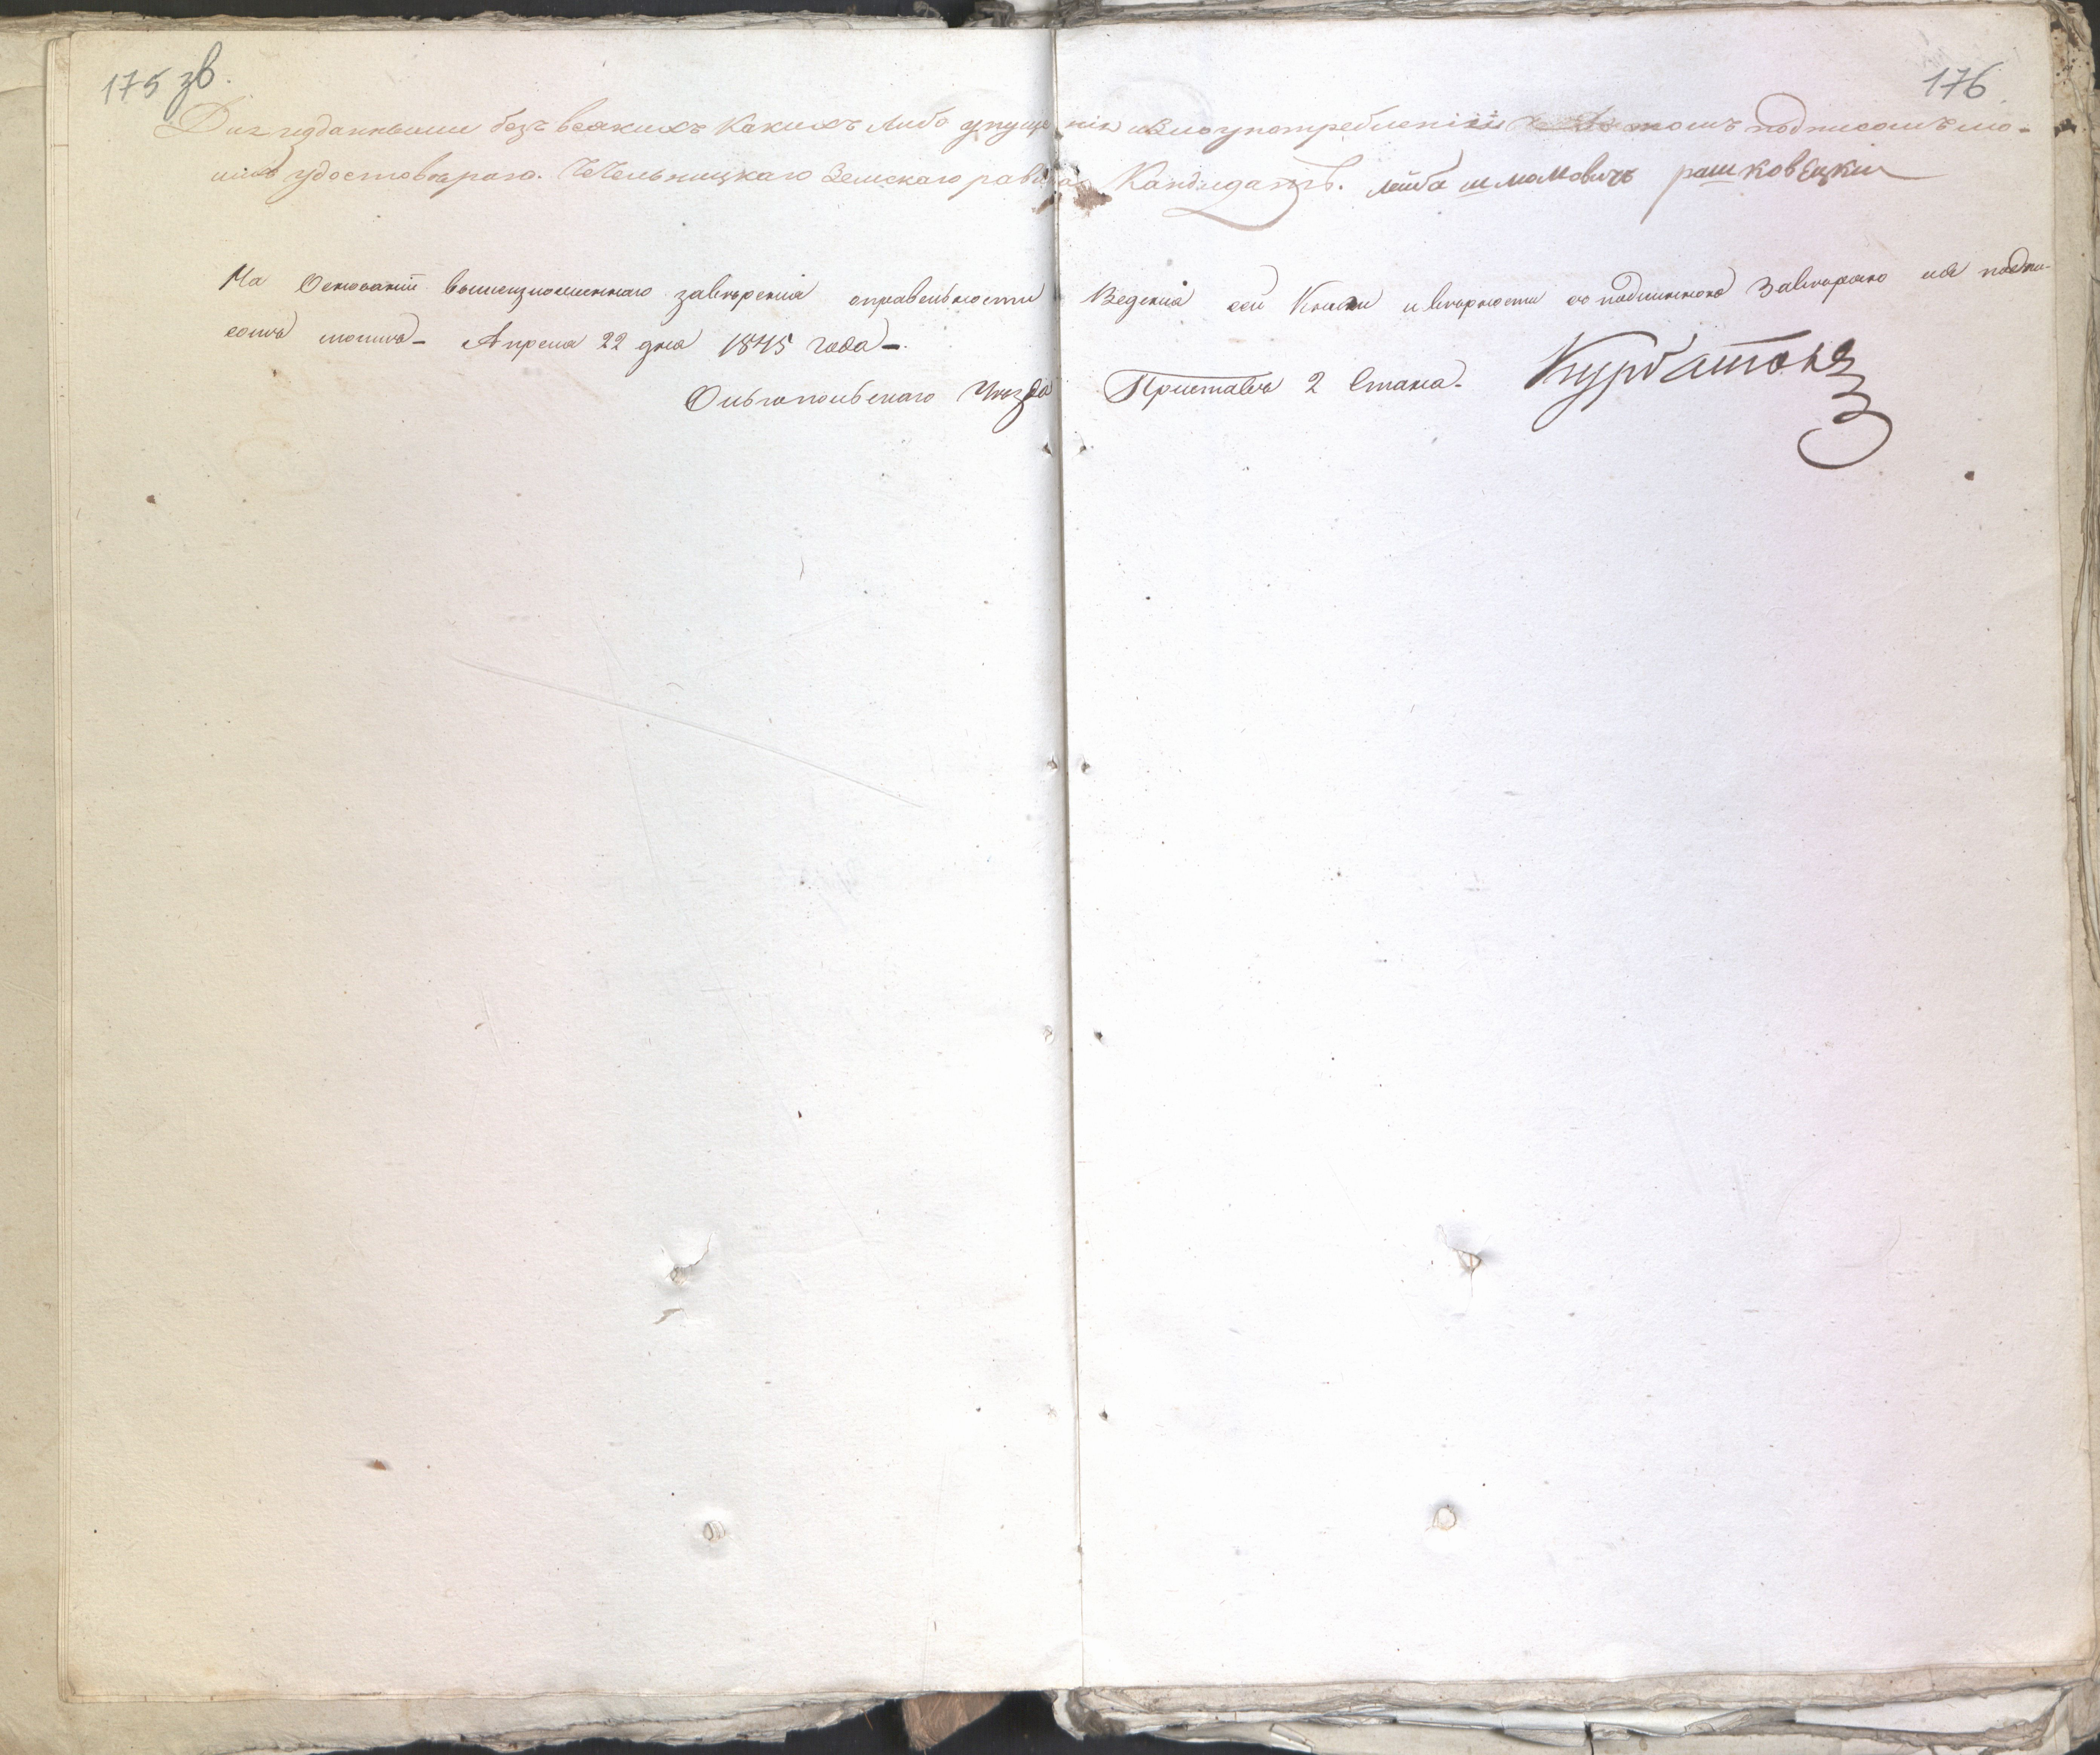 175 зв.
176
Дихъ изданными безъ всякихъ какихъ либо упущенія и злоупотребленіи въ томъ подписомъ мо-
имъ удостовѣряю. Чечельницкаго Земскаго равина Кандидатъ. лейба шмамовичъ рашковецкии
На Основаніи вышеизложеннаго завѣренія оправельности Веденія сей Книги и вѣрности съ подлинною Завѣряю моѣ подпи-
сомъ моимъ - Апреля 22 дня 1845 года -
Ольгопольскаго Уѣзда Приставъ 2 Стана. Курбатовъ